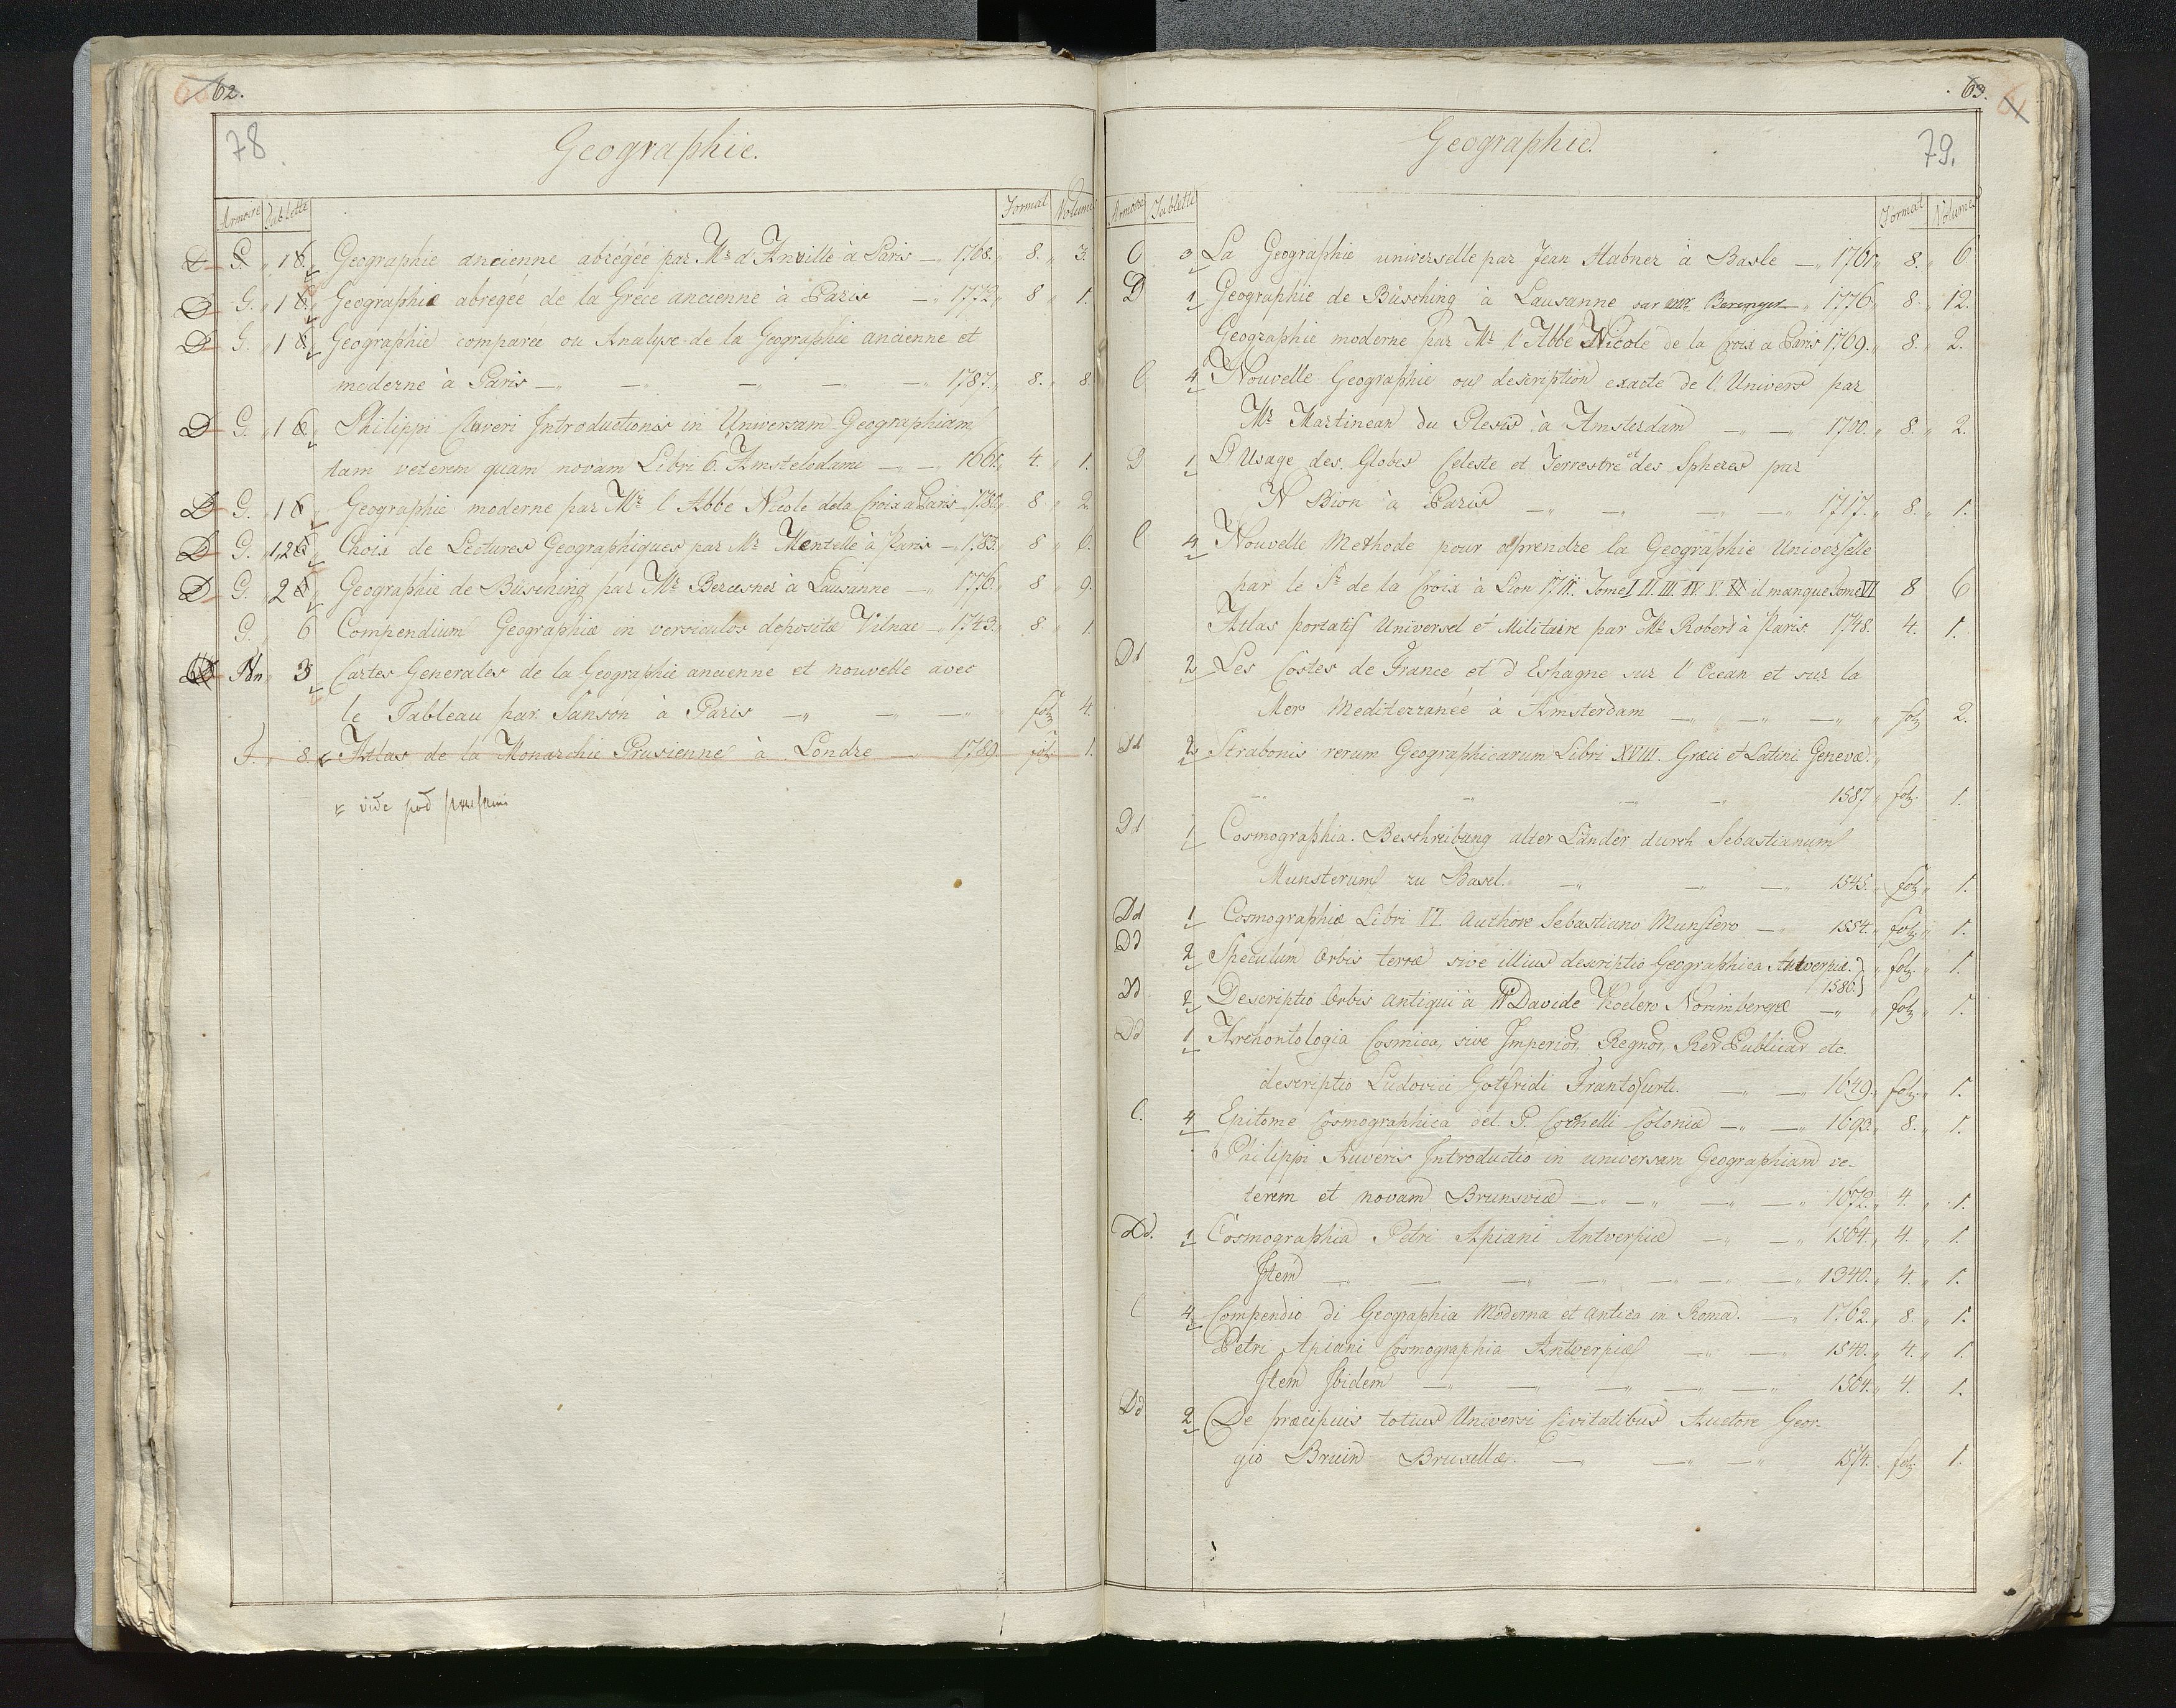 62.
78.
Geographie.
Armoire Tablette Format Volume
D G. 16. Geographie ancienne abrégée par Mr d'Anville à Paris — 1768. 8. 3.
D G. 16. Geographie abregée de la Grece ancienne à Paris — 1772. 8 1.
D G. 16 Geographie comparée ou Analyse de la Geographie ancienne et
moderne à Paris — — — — — 1787. 8. 8.
D G. 16 Philippi Cluveri Introductionis in Universam Geographiam
tam veterem quam novam Libri 6. Amstelodami — — 1661. 4. 1.
D G. 16 Geographie moderne par Mr l'Abbé Nicole dela Croix a Paris 1780. 8 2.
D G. 1,26 Choix de Lectures Geographiques par Mr Mentelle à Paris — 1783. 8 6.
D G. 26 Geographie de Busching par Mr Berenger à Lausanne — 1776. 8 9.
G. 6 Compendium Geographiæ in versiculos depositæ Vilnae — 1743. 8. 1.
3 Cartes Generales de la Geographie ancienne et nouvelle avec
le Tableau par Sanson à Paris — — — fol. 4.
F. 8. Atlas de la Monarchie Prusienne à Londre — 1789. fol. 1.
vide pod
63.
79.
Geographie.
Armoire Tablette Format Volumes
C 3 La Geographie universelle par Jean Habner à Basle — 1761. 8. 6.
D 1 Geographie de Büsching à Lausanne par mr Berenger 1776. 8. 12.
Geographie moderne par Mr l'Abbé Nicole de la Croix a Paris 1769. 8. 2.
C 4 Nouvelle Geographie ou description exacte de l'Univers par
Mr Martinean du Plesis à Amsterdam — — 1700. 8. 2.
D 1 L'Usage des Globes Celeste et Terrestre et des Spheres par
N Bion à Paris — — — — 1717. 8. 1.
C 4 Nouvelle Methode pour aprendre la Geographie Universelle
par le Sr de la Croix à Lion 1717. Tome I II. III. IV. V. il manque Tome VI 8 6
Atlas portatif Universel et Militaire par Mr Robert à Paris. 1748. 4. 1.
Dd 2 Les Côstes de France et d'Espagne sur l'Ocean et sur la
Mer Mediterranéé à Amsterdam — — — fol. 2.
Dd 2 Strabonis rerum Geographicarum Libri XVIII. Græci et Latini Genevæ.
— — — — 1587 fol. 1.
Dd 1 Cosmographia. Beschreibung alter Länder durch Sebastianum
Munsterum zu Basel. — — — 1545. fol. 1.
Dd 1 Cosmographiæ Libri VI. Authore Sebastiano Munstero — 1554. fol. 1.
Dd 2 Speculum Orbis terræ sive illius descriptio Geographica Antverpiæ. fol. 1.
(1586.)
Dd 2 Descriptio Orbis antiqui à Davide Koelero Norimbergæ — fol. 1.
Dd 1 Archontologia Cosmica, sive Imperior, Regnor, Rer Publicar etc.
descriptio Ludovici Gotfridi Francofurti. — — 1649. fol. 1.
C. 4 Epitome Cosmographica del. P. Cornelli Coloniæ — — 1693. 8. 1.
Philippi Kuveris Introductio in universam Geographiam ve-
terem et novam Brunsviæ — — — — 1672. 4. 1.
Dd. 1 Cosmographia Petri Apiani Antverpiæ — — 1564. 4. 1.
Item — — — — — — 1540. 4. 1.
C 4 Compendio di Geographia Moderna et Antica in Roma. — 1762. 8. 1.
Petri Apiani Cosmographia Antverpiæ — — 1540. 4. 1.
Item Ibidem — — — — — 1564. 4. 1.
Dd 2 De præcipuis totius Universi Civitatibus Auctore Geor-
gio Bruin Bruxellæ. — — — 1574. fol. 1.